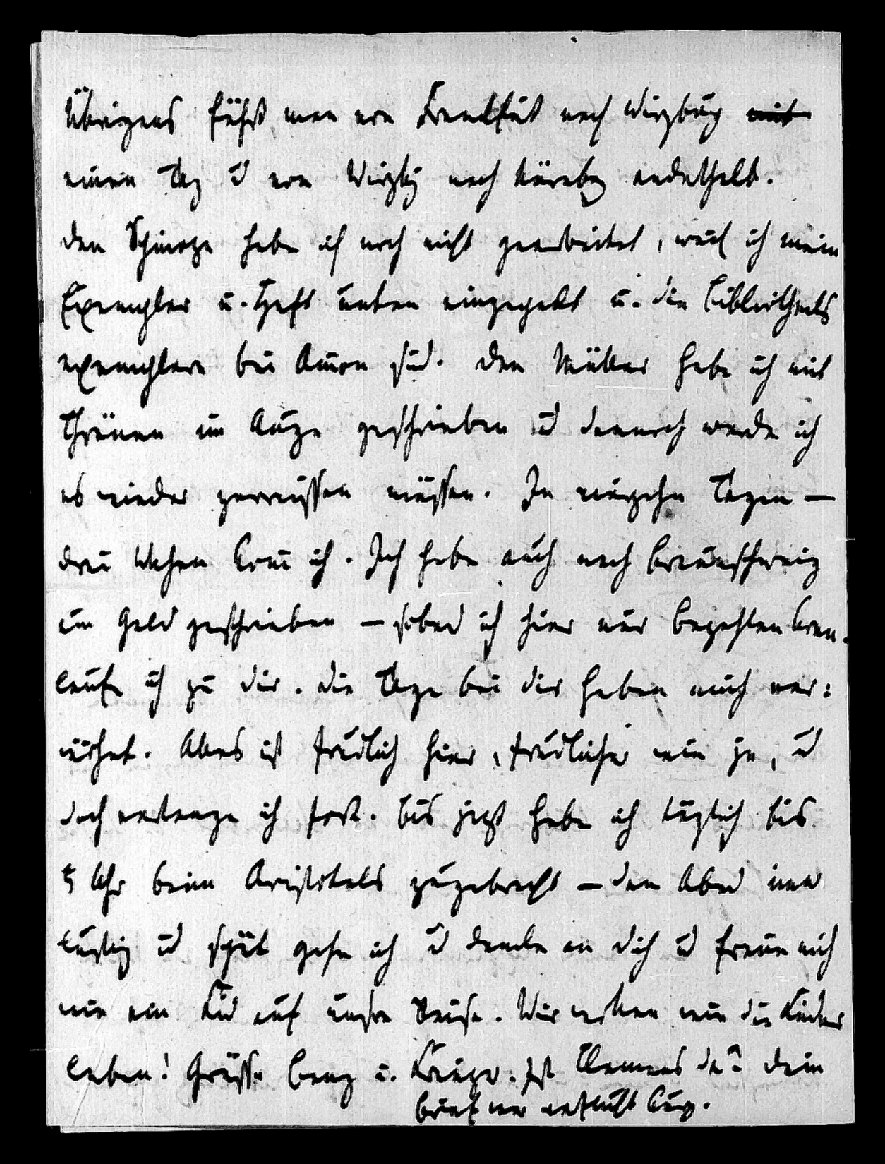 Übrigens fährt man von Frankfurt nach Würzburg mit
einen Tag u von Würzbg nach Nürnbg anderthalb.
den Spinoza habe ich noch nicht gearbeitet, weil ich mein
Exemplar u. Heft unten eingepakt u. die Bibliotheks
exemplare bei Amon sind. Den habe ich mit
Thränen im Auge geschrieben u dennoch werde ich
es wieder zerreissen müssen. In vierzehn Tagen —
drei Wochen komm ich. Ich habe auch nach Braunschweig
um Geld geschrieben — sobald ich hier nur bezahlen kan.
laufe ich zu dir. die Tage bei dir haben mich ver:
wöhnt. Alles ist freudlich hier, freudlicher wie je, u
doch verlange ich fort. bis jezt habe ich täglich bis
5 Uhr beim Aristoteles zugebracht — den Abend
lustig u spät gehe ich u denke an dich u freue mich
wie ein Kind auf unsre Reise. Wir wollen wie die Kinder
leben! Grüsse u. Ist Clemens da? dein
brief war kurz.